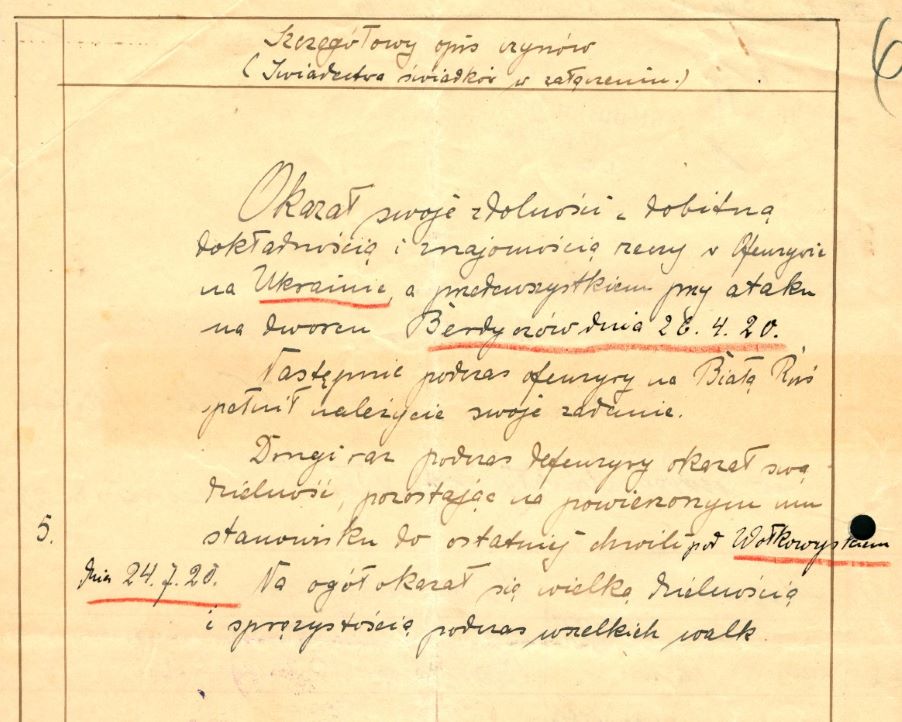 6
Szczegółowy opis czynów
(Świadectwa świadków w załączeniu.)
Okazał swoje zdolności z dobitną
dokładnością i znajomością rzeczy w Ofenzywie
na Ukrainie, a przedewszystkiem przy ataku
na dworzec Berdyczów dnia 26.4.20.
Następnie podczas ofenzywy na Białą Ruś
pełnił należycie swoje zadanie.
Drugi raz podczas defenzywy okazał swą
dzielność, pozostając na powierzonym mu
5. stanowisku do ostatniej chwili pod Wołkowyskiem
dnia 24.7.20. Na ogół okazał się wielką dzielnością
i sprężystością podczas wszelkich walk.